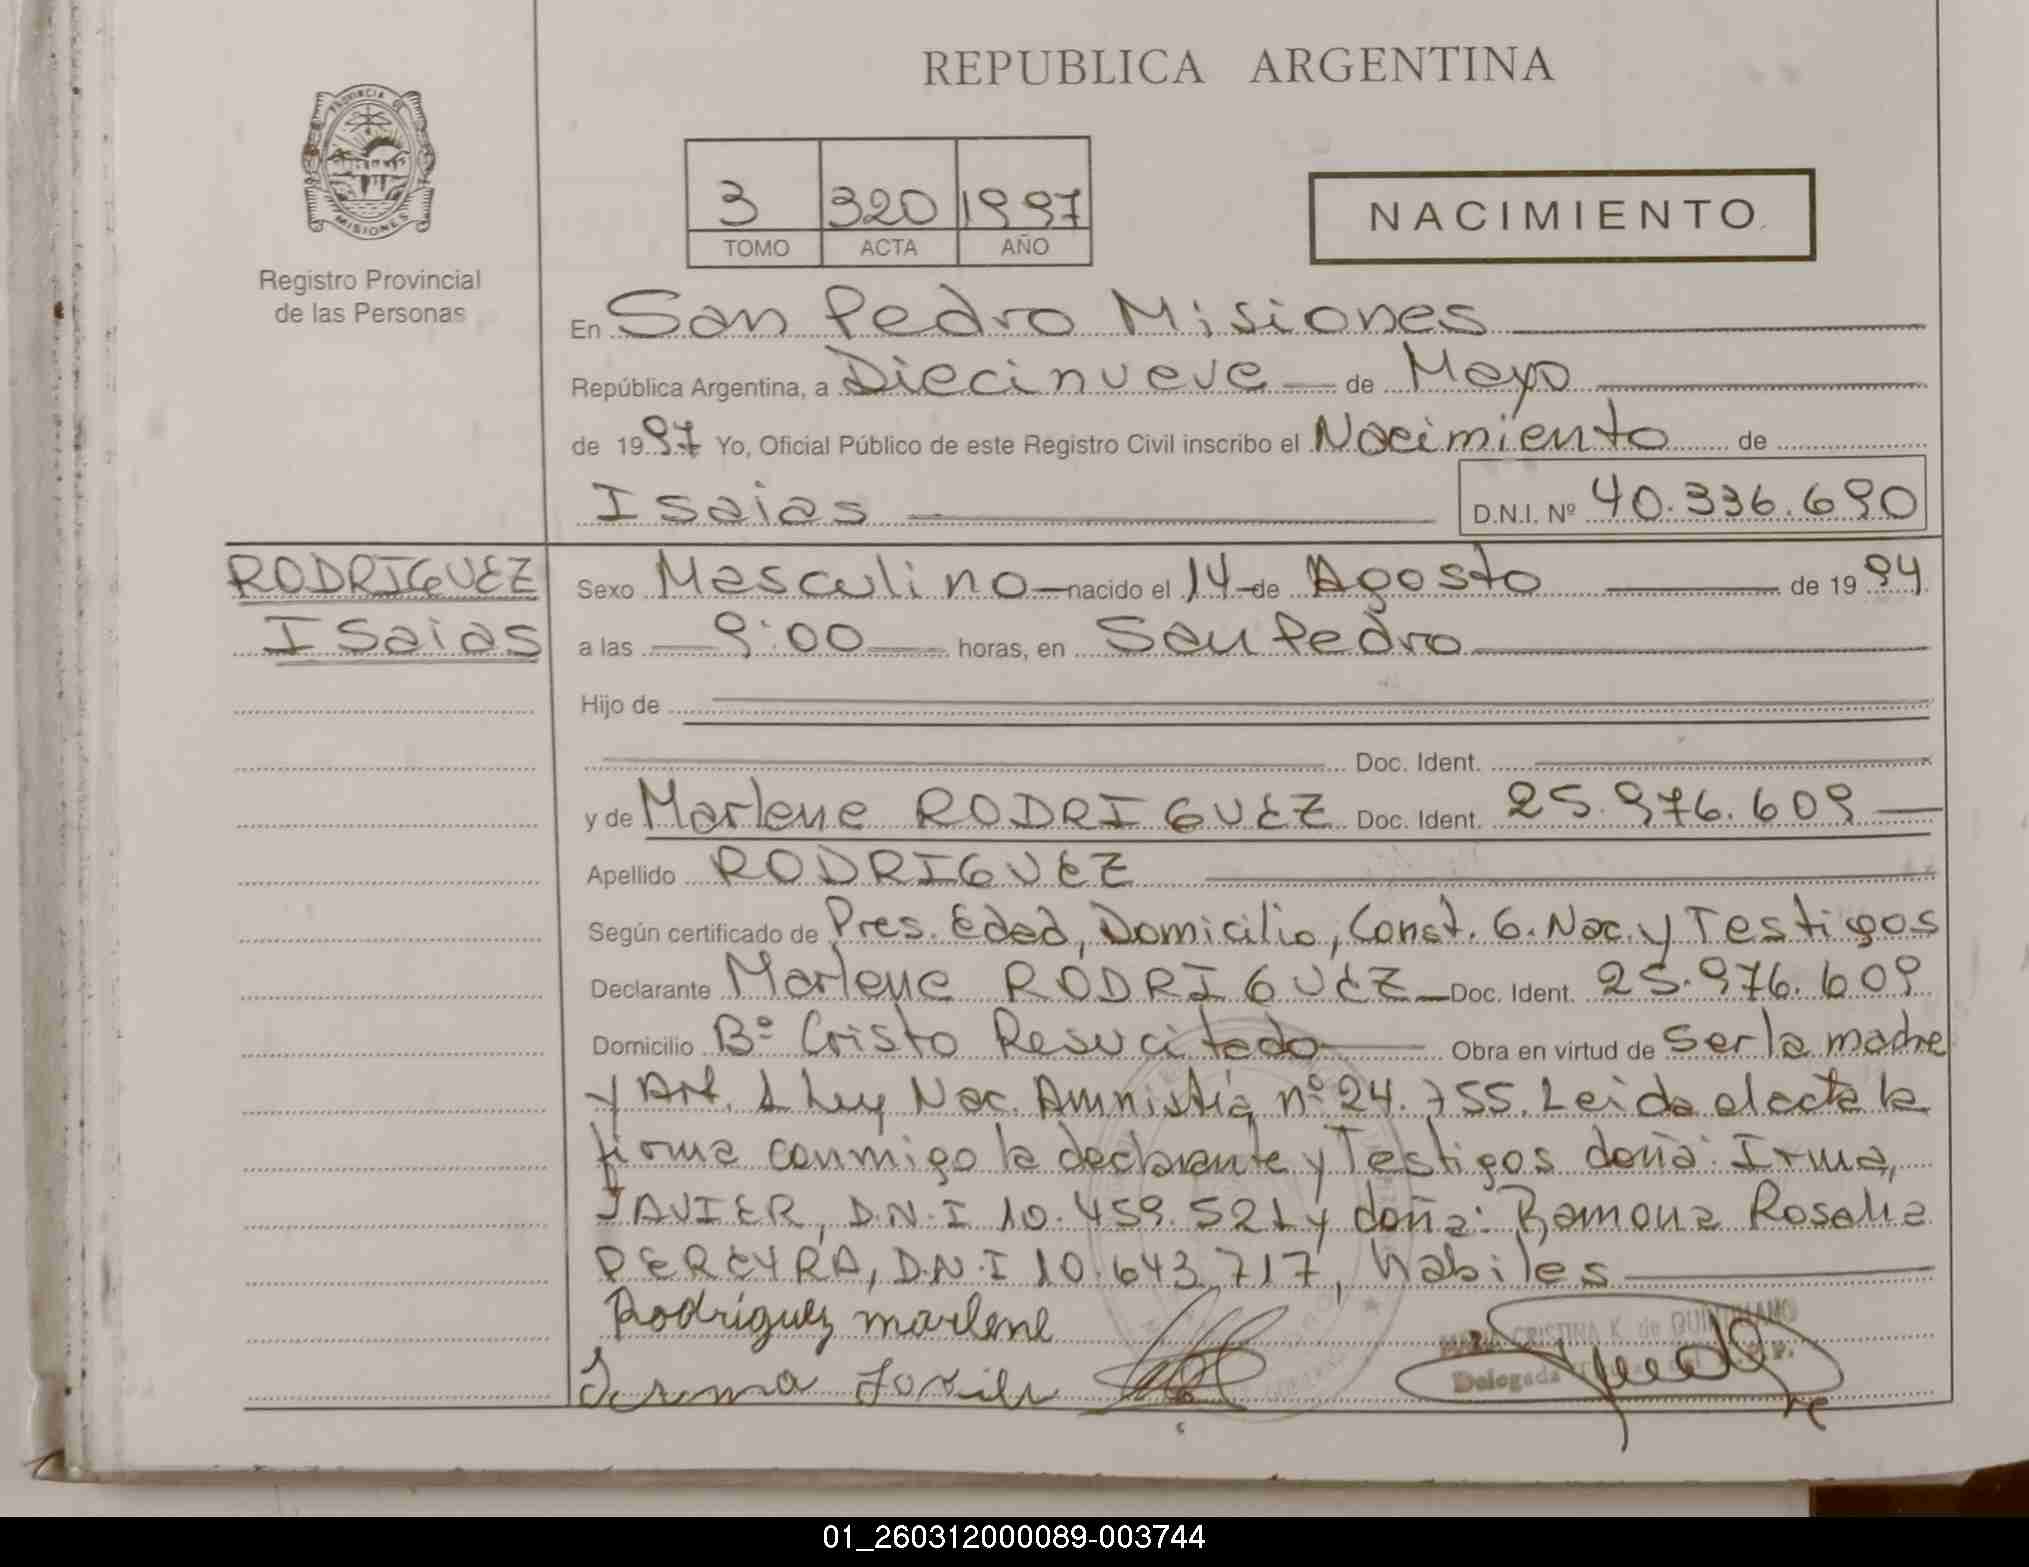 REPUBLICA ARGENTINA
PROVINCIA DE
MISIONES
Registro Provincial
de las Personas
3 320 1997
TOMO ACTA AÑO
NACIMIENTO
En San Pedro Misiones
República Argentina, a Diecinueve de Mayo
de 1997 Yo, Oficial Público de este Registro Civil inscribo el Nacimiento de
Isaias D.N.I. Nº 40.336.690
RODRIGUEZ
Isaias
Sexo Masculino nacido el 14 de Agosto de 1994
a las 9:00 horas, en San Pedro
Hijo de
Doc. Ident.
y de Marlene RODRIGUEZ Doc. Ident. 25.976.609
Apellido RODRIGUEZ
Según certificado de Pres. Edad, Domicilio, Const. G. Nac. y Testigos
Declarante Marlene RODRIGUEZ Doc. Ident. 25.976.609
Domicilio Bº Cristo Resucitado Obra en virtud de ser la madre
y Art. 1 Ley Nac. Amnistia nº 24.755. Leida el acta la
firma conmigo la declarante y Testigos doña: Irma,
JAVIER, D.N.I 10.459.521 y doña: Ramona Rosalia
PEREYRA, D.N.I 10.643.717, habiles
Rodríguez marlene
CRISTINA K. de
Delegada
Irma Javier
01_260312000089-003744